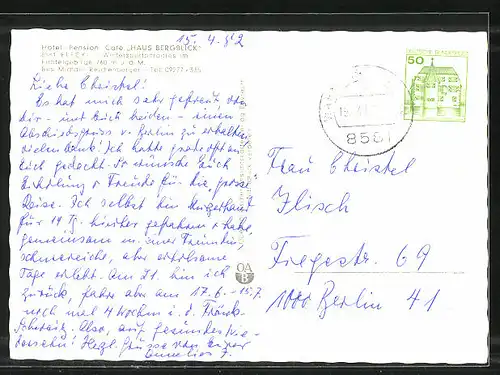 15. 4. 82
Hotel Pension Café „HAUS BERGBLICK"
Wintersportzentrum im
Fichtelgebirge 760 m ü. d. M.
Bes. Michael Reichenberger Tel.
Liebe Christel!
Es hat mich sehr gefreut, von
dir - und Euch beiden - einen
Abschiedsgruss v. Berlin zu erhalten,
vielen Dank! Ich hatte grade oft an
Euch gedacht & wünsche Euch
Erholung & Freude für die "grosse"
Reise. Ich selbst bin
für 14 Tg. hierher gefahren & habe
gemeinsam m. einer Freundin
schneereiche, aber erholsame
Tage erlebt. Am 21. bin ich
zurück, fahre aber am 17.6. - 15.7.
noch mal 4 Wochen i. d. Fränk.
Schweiz. Also, auf gesundes Wie-
dersehn! Herzl. Grüsse von Eurer
DEUTSCHE BUNDESPOST
50
8581
Frau Christel
Ilisch
Fregestr. 69
1000 Berlin 41